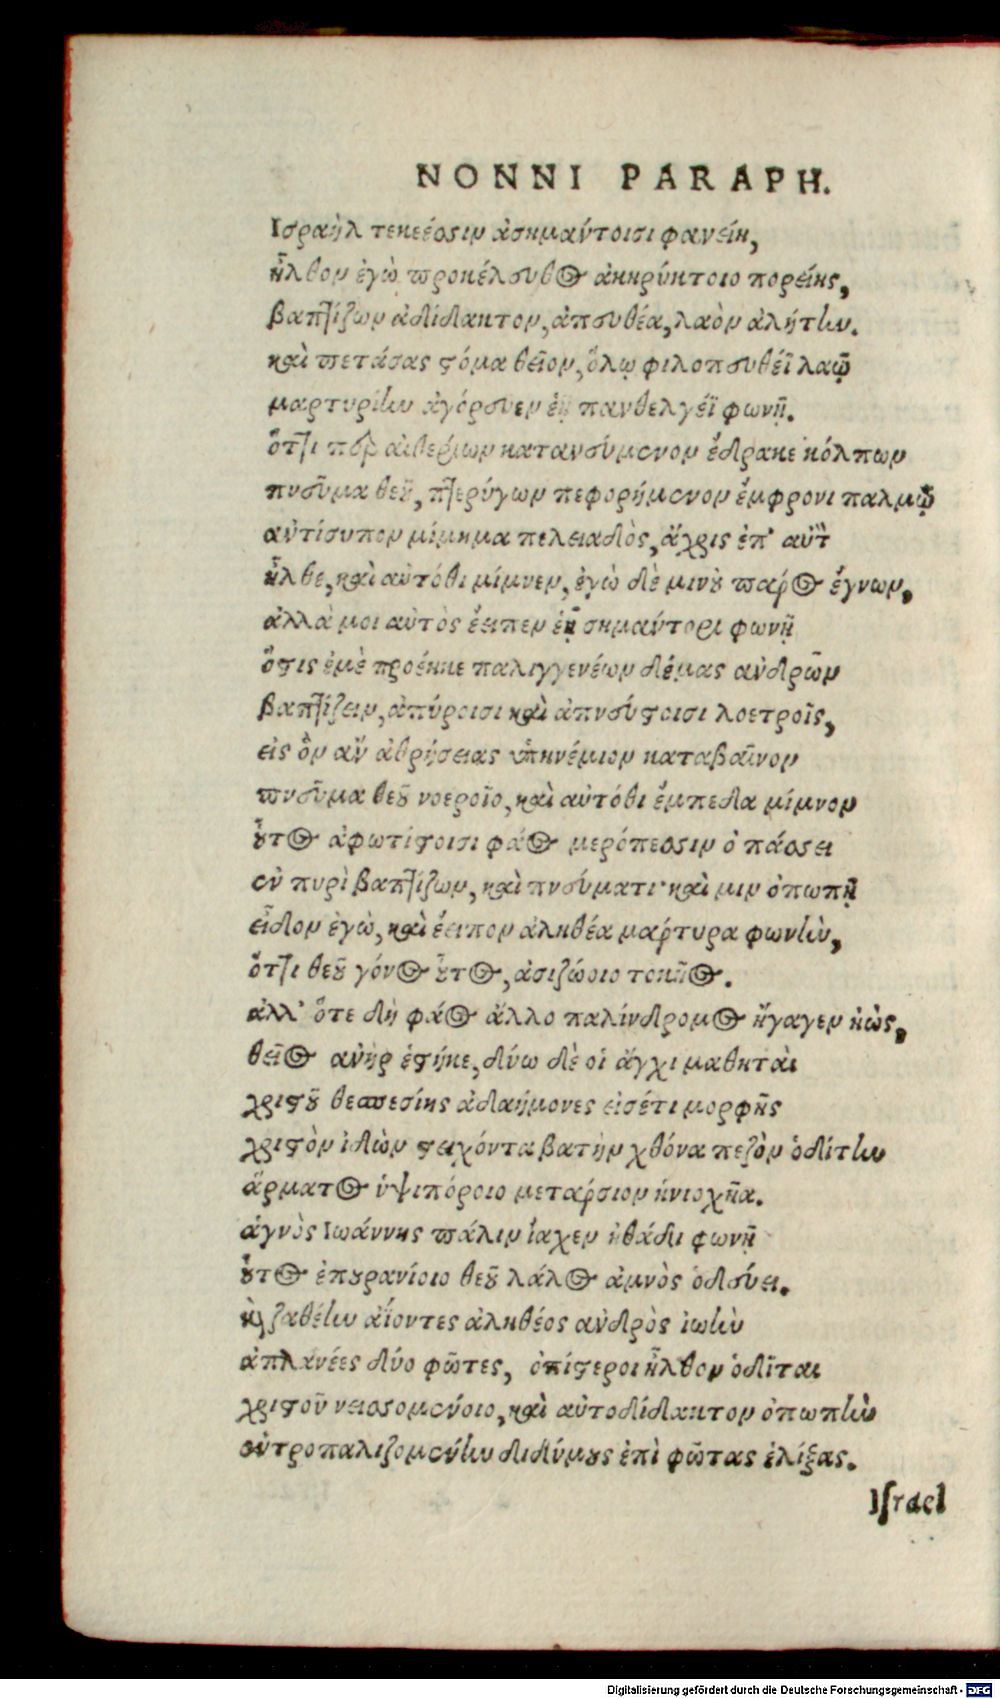 NONNI PARAPH.
Ισραὴλ τεκέεσσιν ἀσημαύτοισι φανείη,
ἦλθον ἐγὼ προκέλευθος ἀκηρύκτοιο πορείης,
βαπτίζων ἀδίδακτον, ἀπευθέα, λαὸν ἀλήτην.
καὶ πετάσας στόμα θεῖον, ὅλῳ φιλοπευθέϊ λαῷ
μαρτυρίην ἀγόρευεν ἑῇ πανθελγέϊ φωνῇ.
ὅττι παρ αἰθερίων κατανεύμενον ἔδρακε κόλπων
πνεῦμα θεοῦ, πτερύγων πεφορήμενον ἔμφρονι παλμῷ
αὐτίτυπον μίμημα πελειαδὸς, ἄχρις ἐπ' αὐτ
ἦλθε, καὶ αὐτόθι μίμνεν, ἐγὼ δὲ μιν οὐ πάρος ἔγνων,
ἀλλά μοι αὐτὸς ἔειπεν ἑῇ σημαύτορι φωνῇ
ὅστις ἐμὲ προέηκε παλιγγενέων δέμας αὐδρῶν
βαπτίζειν, ἀπύροισι καὶ ἀπνεύστοισι λοετροῖς,
εἰς ὃν ἂν ἀθρήσειας ὑπηνέμιον καταβαῖνον
πνεῦμα θεοῦ νοεροῖο, καὶ αὐτόθι ἔμπεδα μίμνον
οὗτος ἀφωτίστοισι φάος μερόπεσσιν ὀπάσσει
ἐν πυρὶ βαπτίζων, καὶ πνεύματι· καὶ μιν ὀπωπῇ
εἶδον ἐγὼ, καὶ ἔειπον ἀληθέα μάρτυρα φωνὴν,
ὅττι θεοῦ γόνος οὗτος, ἀειζώοιο τοκῆος.
ἀλλ' ὅτε δὴ φάος ἄλλο παλίνδρομος ἤγαγεν ἠὼς,
θεῖος αὐὴρ ἑστήκε, δύω δὲ οἱ ἄγχι μαθηταὶ
χριστοῦ θεσπεσίης ἀδαήμονες εἰσέτι μορφῆς
χριστὸν ἰδὼν στειχόντα βατὴν χθόνα πεζὸν ὁδίτην
ἅρματος ὑψιπόροιο μετάρσιον ἡνιοχῆα.
ἁγνὸς Ιωάννης πάλιν ἴαχεν ἠθάδι φωνῇ
οὗτος ἐπουρανίοιο θεοῦ λάλος ἀμνὸς ὁδεύει.
καὶ ζαθέην ἀΐοντες ἀληθέος αὐδρὸς ἰωὴν
ἀπλανέες δύο φῶτες, ὀπίστεροι ἦλθον ὁδῖται
χριστοῦ νεισσομένοιο, καὶ αὐτοδίδακτον ὀπωπὴν
εὐτροπαλιζομένην διδύμους ἐπὶ φῶτας ἑλίξας.
Israel
Digitalisierung gefördert durch die Deutsche Forschungsgemeinschaft - DFG